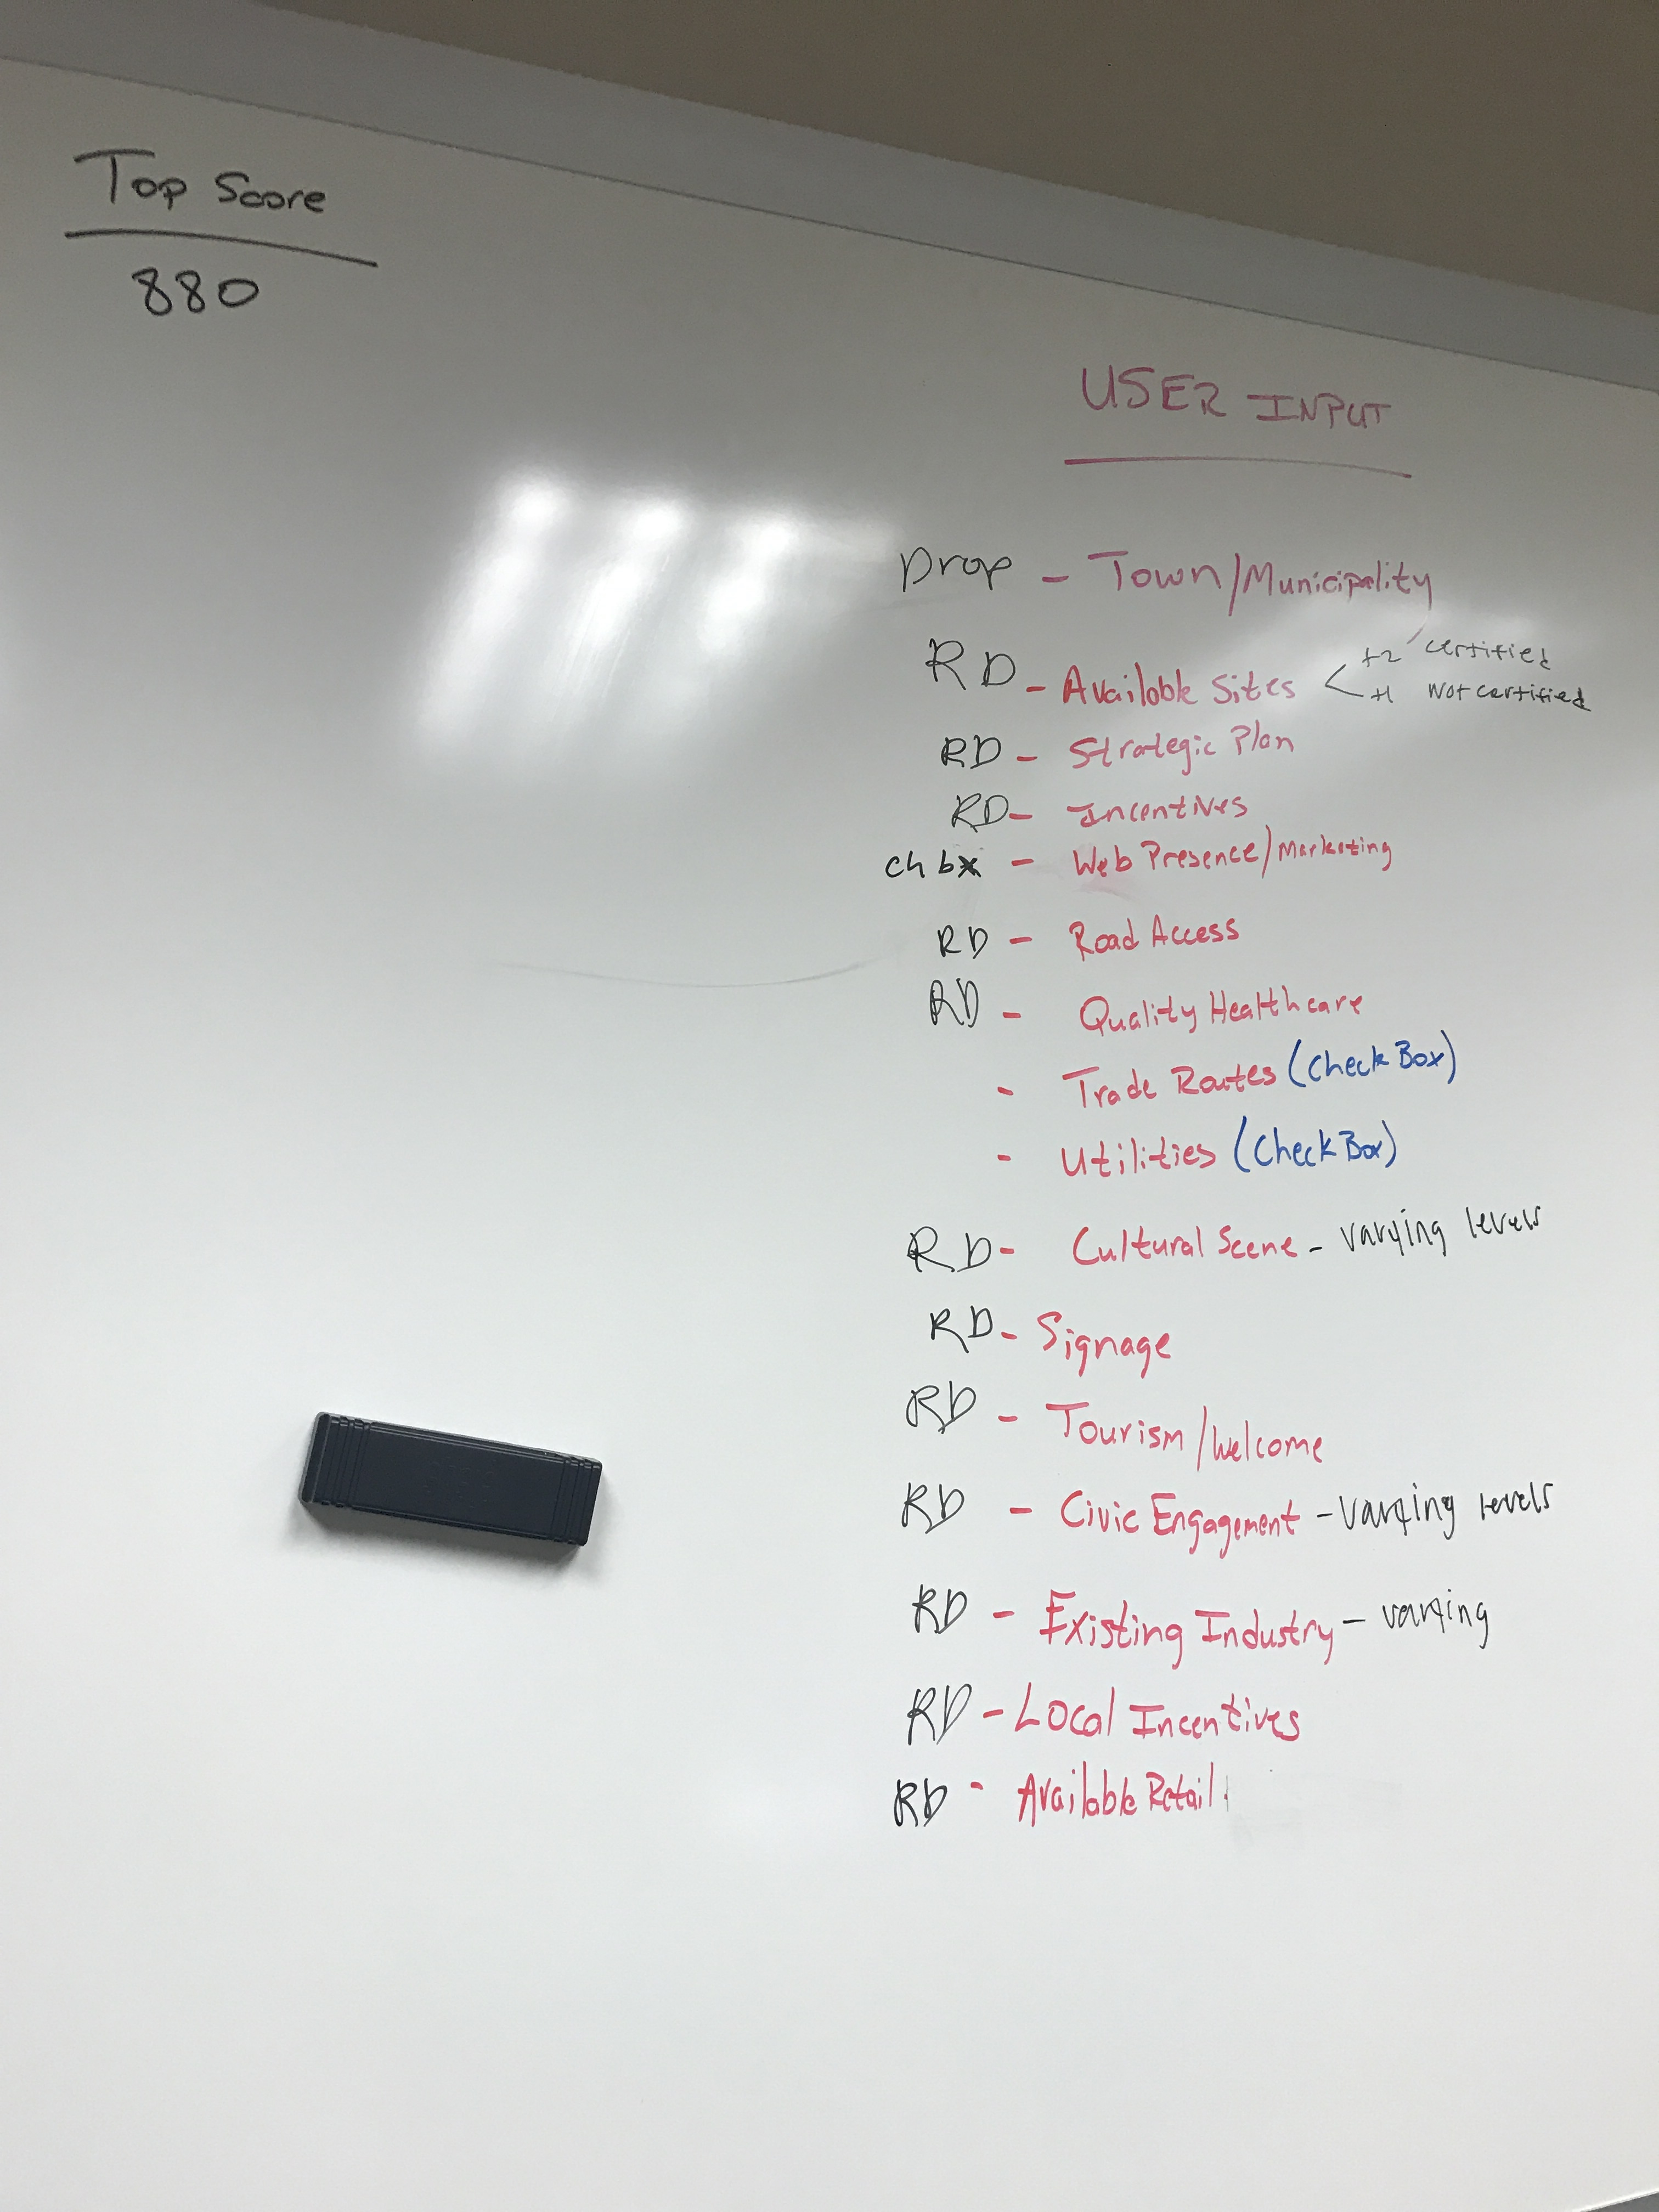 Top Score
880
USER INPUT
Drop - Town/Municipality
RD - Available Sites < +2 certified
+1 Not certified
RD - Strategic Plan
RD - Incentives
ch bx - Web Presence/Marketing
RD - Road Access
RD - Quality Healthcare
- Trade Routes (Check Box)
- Utilities (Check Box)
RD - Cultural Scene - varying levels
RD - Signage
RD - Tourism/Welcome
RD - Civic Engagement - varying levels
RD - Existing Industry - varying
RD - Local Incentives
RD - Available Retail